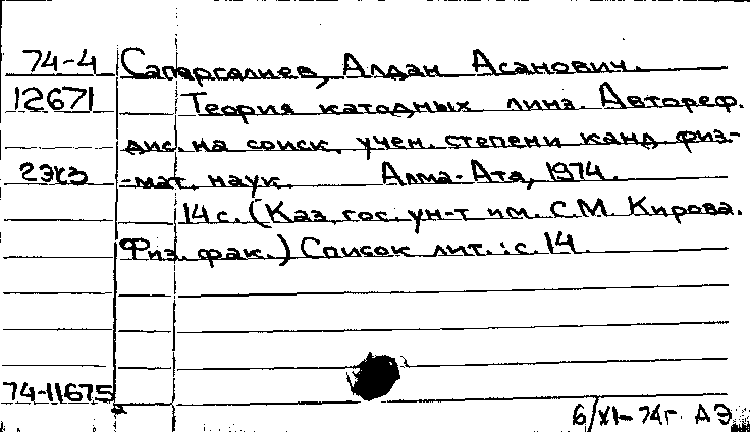 74-4 Сапаргалиев, Алдан Асанович.
12671 Теория катодных линз. Автореф.
дис. на соиск. учен. степени канд. физ.-
2экз -мат. наук. Алма-Ата, 1974.
14 с. (Каз. гос. ун-т им. С.М. Кирова.
Физ. фак.) Список лит.: с. 14.
74-11675
6/XI-74г. АЭ